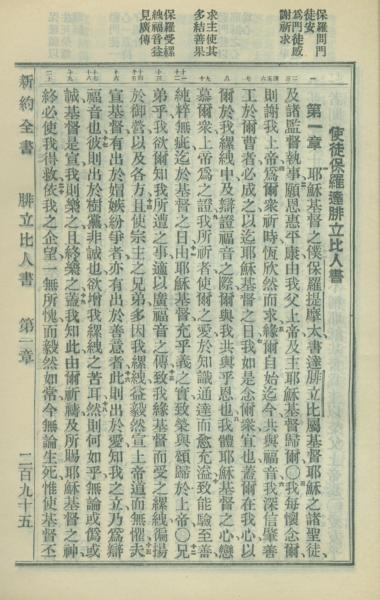 保羅問門
徒安
爲門徒感
謝祈求
求主使其
多結善果
保羅受縲
絏福音益
見廣傳
使徒保羅達腓立比人書
第一章 耶穌基督之僕保羅提摩太書達腓立比屬基督耶穌之諸聖徒
及諸監督執事願恩惠平康由我父上帝及主耶穌基督歸爾〇我每懷念爾
則謝我上帝爲爾衆祈時恆欣然而求緣爾自始迄今共與福音我深信肇善
工於爾曹者必成之以迄耶穌基督之日我如是念爾衆宜也蓋爾在我心以
爾於我縲絏中及辯證福音之際爾與我共與乎恩也我體耶穌基督之心戀
慕爾衆上帝爲之證我所祈者使爾之愛於知識通達而愈充溢致能驗至善
純粹無疵迄於基督之日由耶穌基督充乎義之實致榮與頌歸於上帝〇兄
弟乎我欲爾知我所遭之事適以廣福音之傳致我緣基督而受之縲絏徧揚
於御營以及各方且使宗主之兄弟多因我縲絏益毅然宣上帝道而無懼夫
宣基督有出於媢嫉紛爭者亦有出於善意者此則出於愛知我之立乃爲辯
福音也彼則出於樹黨非誠也欲增我縲絏之苦耳然則何如乎無論或僞或
誠基督是宣我則樂之且終樂之蓋我知此由爾祈禱及所賜耶穌基督之神
終必使我得救依我之企望一無所愧而毅然如常今無論生死惟使基督丕
新約全書 腓立比人書 第一章 二百九十五